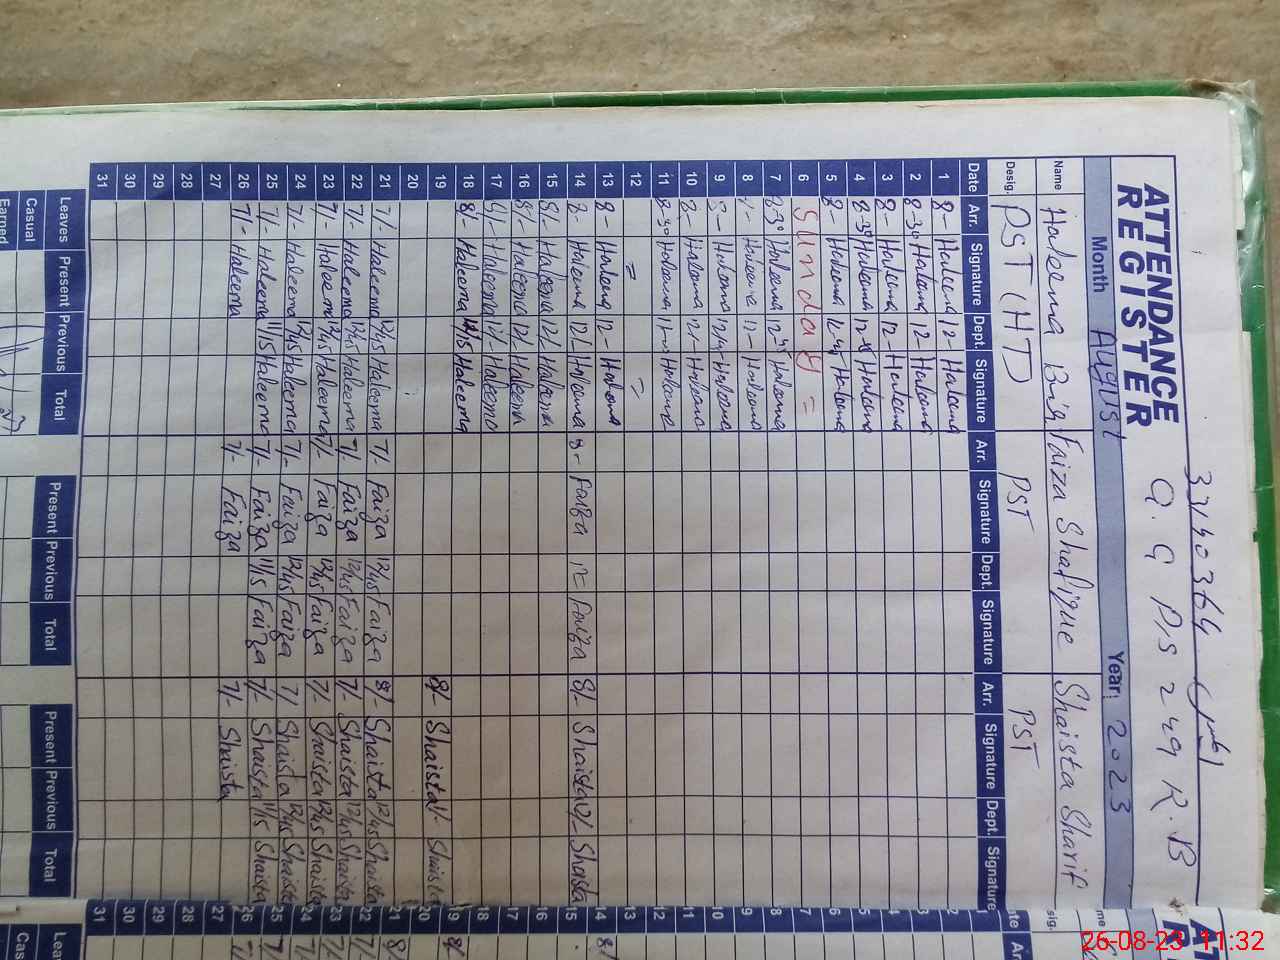 33130364
ATTENDANCE REGISTER
G. G P/S 249 R.B
Month August Year 2023
Name Haleema Bibi Faiza Shafique Shaista Sharif
Desig. PST (HT) PST PST
Date Arr. Signature Dept. Signature Arr. Signature Dept. Signature Arr. Signature Dept. Signature
1 8- Haleema 12- Haleema
2 8-30 Haleema 12- Haleema
3 8- Haleema 12- Haleema
4 8-30 Haleema Haleema
5 8- Haleema Haleema
6 Sunday =
7 8-30 Haleema Haleema
8 Haleema 12- Haleema
9 Haleema Haleema
10 8- Haleema 12- Haleema
11 8-30 Haleema Haleema
12 = =
13 8- Haleema 12- Haleema
14 8- Haleema 12/- Haleema 8- Faiza 12- Faiza 8/- Shaista 12/- Shaista
15 8/- Haleema 12/- Haleema
16 8/- Haleema 12/- Haleema
17 8/- Haleema 12/- Haleema
18 8/- Haleema 12/15 Haleema
19 8/- Shaista Shaista
20
21 7/- Haleema 12/45 Haleema 7/- Faiza 12/45 Faiza 8/- Shaista 12/45 Shaista
22 7/- Haleema 12/45 Haleema 7/- Faiza 12/45 Faiza 7/- Shaista 12/45 Shaista
23 7/- Haleema 12/45 Haleema 7/- Faiza 12/45 Faiza 7/- Shaista 12/45 Shaista
24 7/- Haleema 12/45 Haleema 7/- Faiza 12/45 Faiza 7/ Shaista 12/45 Shaista
25 7/- Haleema 11/15 Haleema 7/- Faiza 11/15 Faiza 7/- Shaista 11/15 Shaista
26 7/- Haleema 7/- Faiza 7/- Shaista
27
28
29
30
31
Leaves Present Previous Total Present Previous Total Present Previous Total
Casual
Earned
26-08-23 11:32